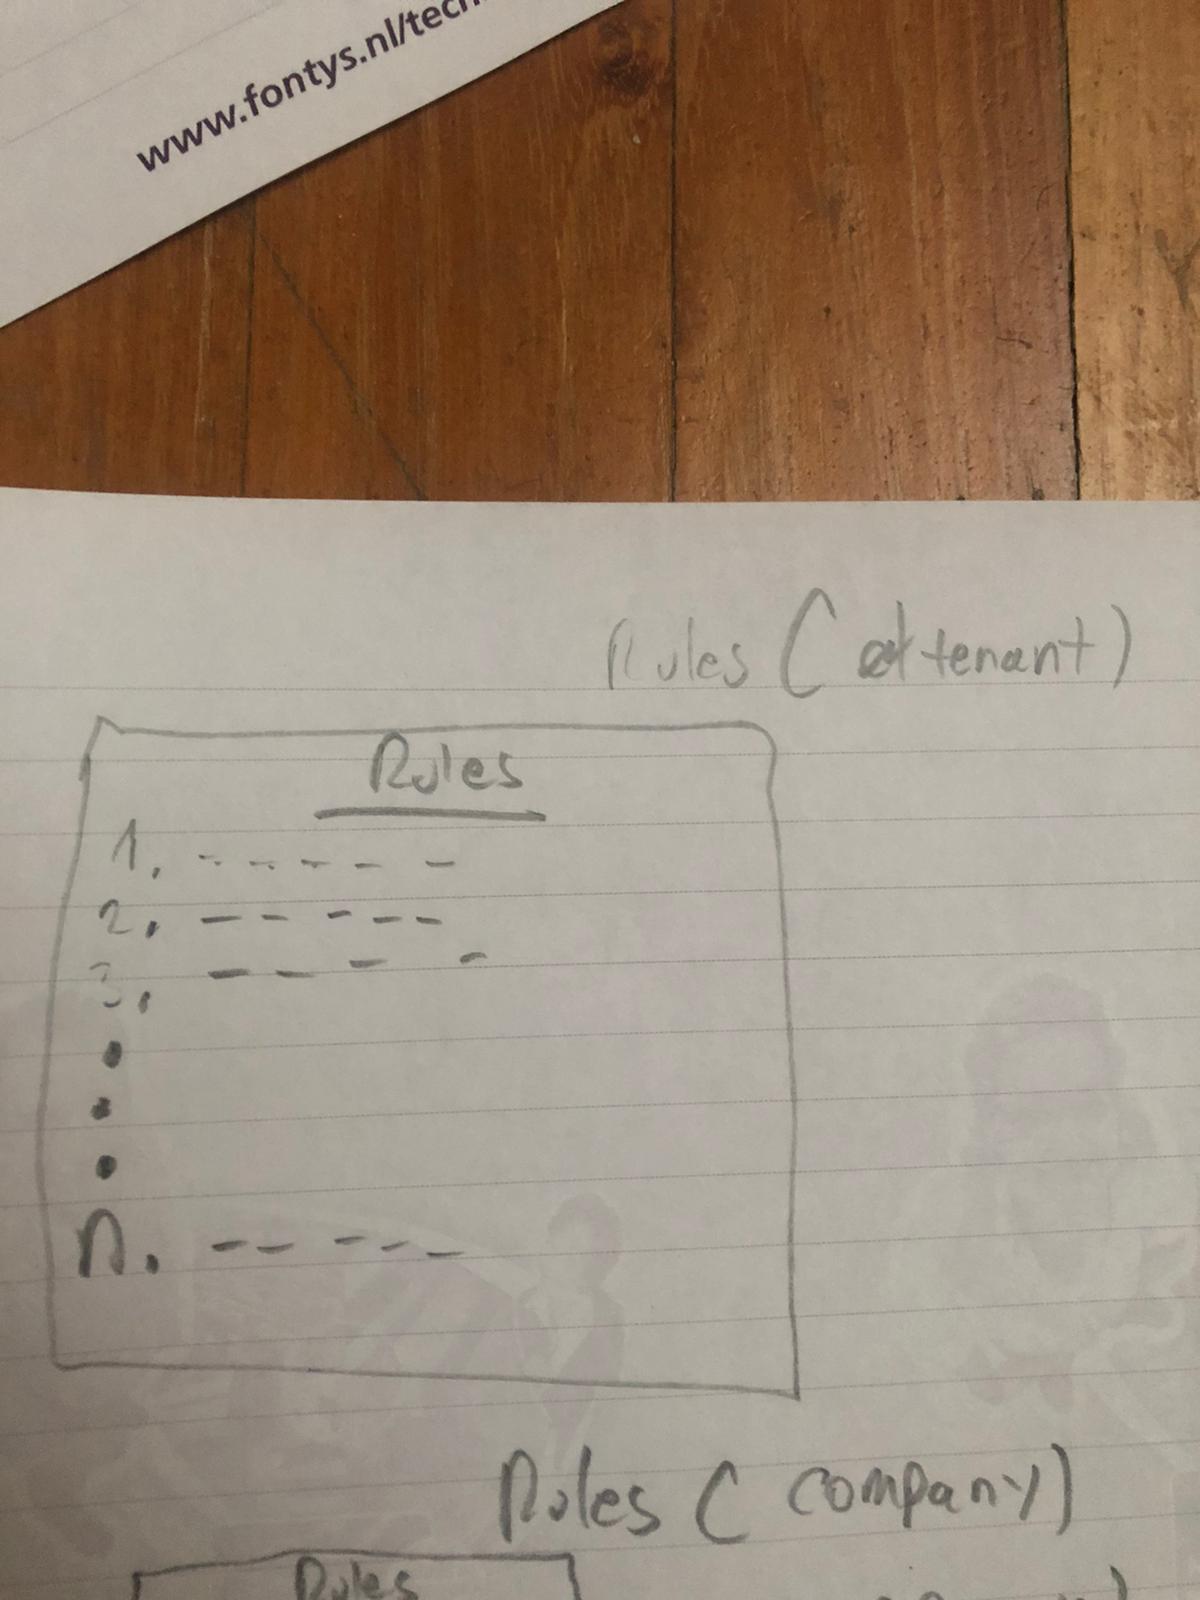 www.fontys.nl/tech
Rules ( tenant)
Rules
1. ----- 
2. -----
3. ----
•
•
•
n. -----
Rules ( company)
Rules